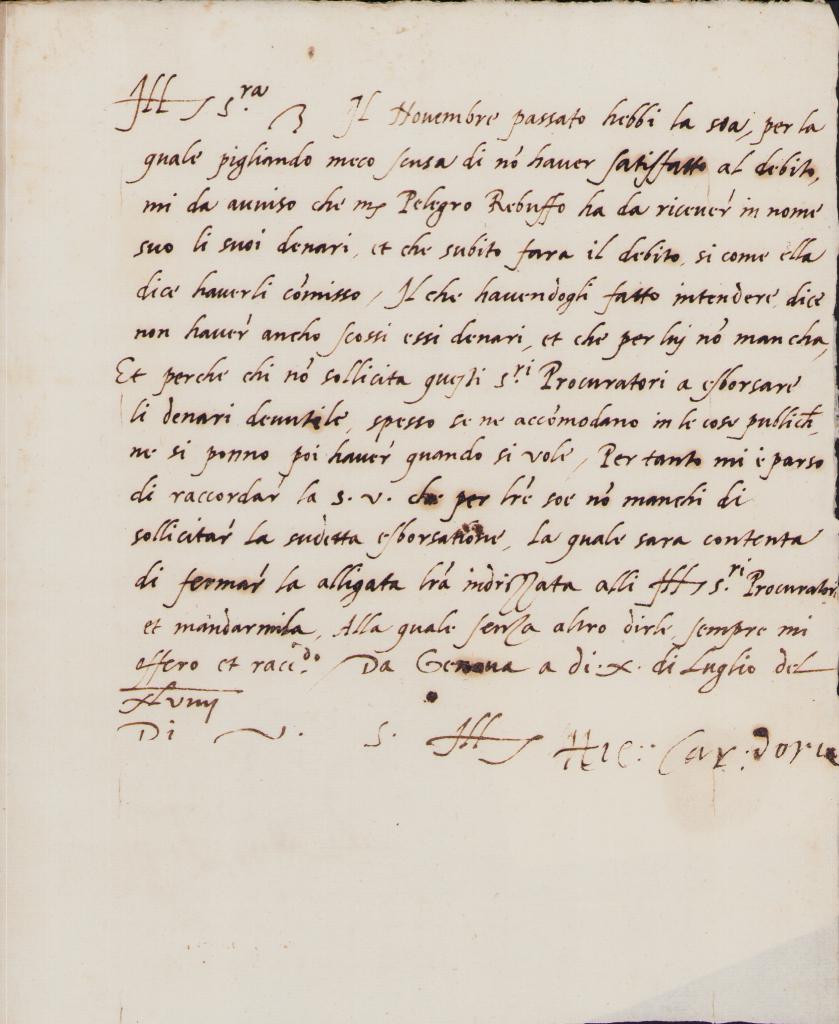 Ill S.ra Il Novembre passato hebbi la sua, per la
quale pigliando meco scusa di nõ haver satisffatto al debito,
mi da avviso che m Pelegro Rebuffo ha da ricever in nome
suo li suoi denari, et che subito fara il debito, si come ella
dice haverli cõmisso, Il che havendogli fatto intendere, dice
non haver ancho scossi essi denari, et che per luj nõ mancha,
Et perche chi nõ sollicita questi S.ri Procuratori a esborsare
li denari devutile, spesso se ne accõmodano in le cose publich,
ne si ponno poi haver quando si vole, Per tanto mi è parso
di raccordar la S. V. che per lre soe nõ manchi di
sollicitar la sudetta esborsatione, la quale sara contenta
di fermar la alligata lra indrizzata alli Ill S.ri Procuratori
et mandarmila, Alla quale senza altro dirle, sempre mi
offero et racc.do Da Genova a di .X. di Luglio del
XLviiij
Di V. S. Ill Hie: Car: Doria